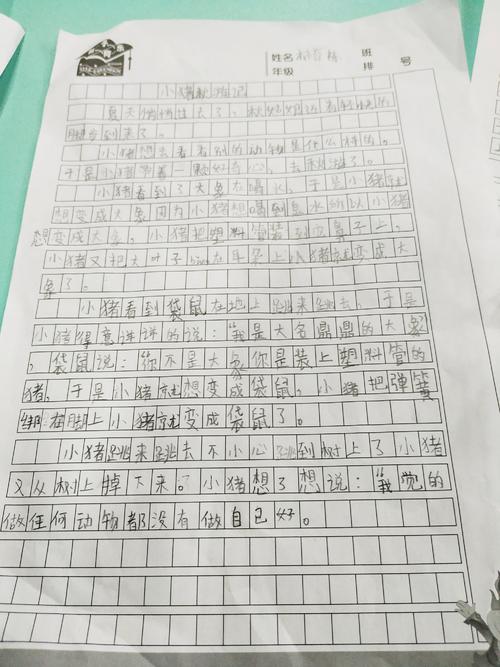 姓名 班
年级 排 号
小猪秋游记
夏天悄悄过去了，秋姑娘迈着轻快的
脚步到来了。
小猪想去看看别的动物是什么样的。
于是小猪带着一颗好奇心，去秋游了。
小猪看到了大象在喝水，于是小猪就
想变成大象因为小猪想喝到息水所以小猪
想变成大象。小猪把塑料管装到鼻子上。
小猪又把大叶子在耳朵上小猪就变成大
象了。
小猪看到袋鼠在地上跳来跳去，于是
小猪得意详详的说：“我是大名鼎鼎的大象
，袋鼠说：“你不是大象你是装上塑料管的
猪，于是小猪就想变成袋鼠，小猪把弹簧
绑在脚上小猪就变成袋鼠了。
小猪跳来跳去不小心跳到树上了小猪
又从树上掉下来。小猪想了想说：“我觉的
做任何动物都没有做自己好。